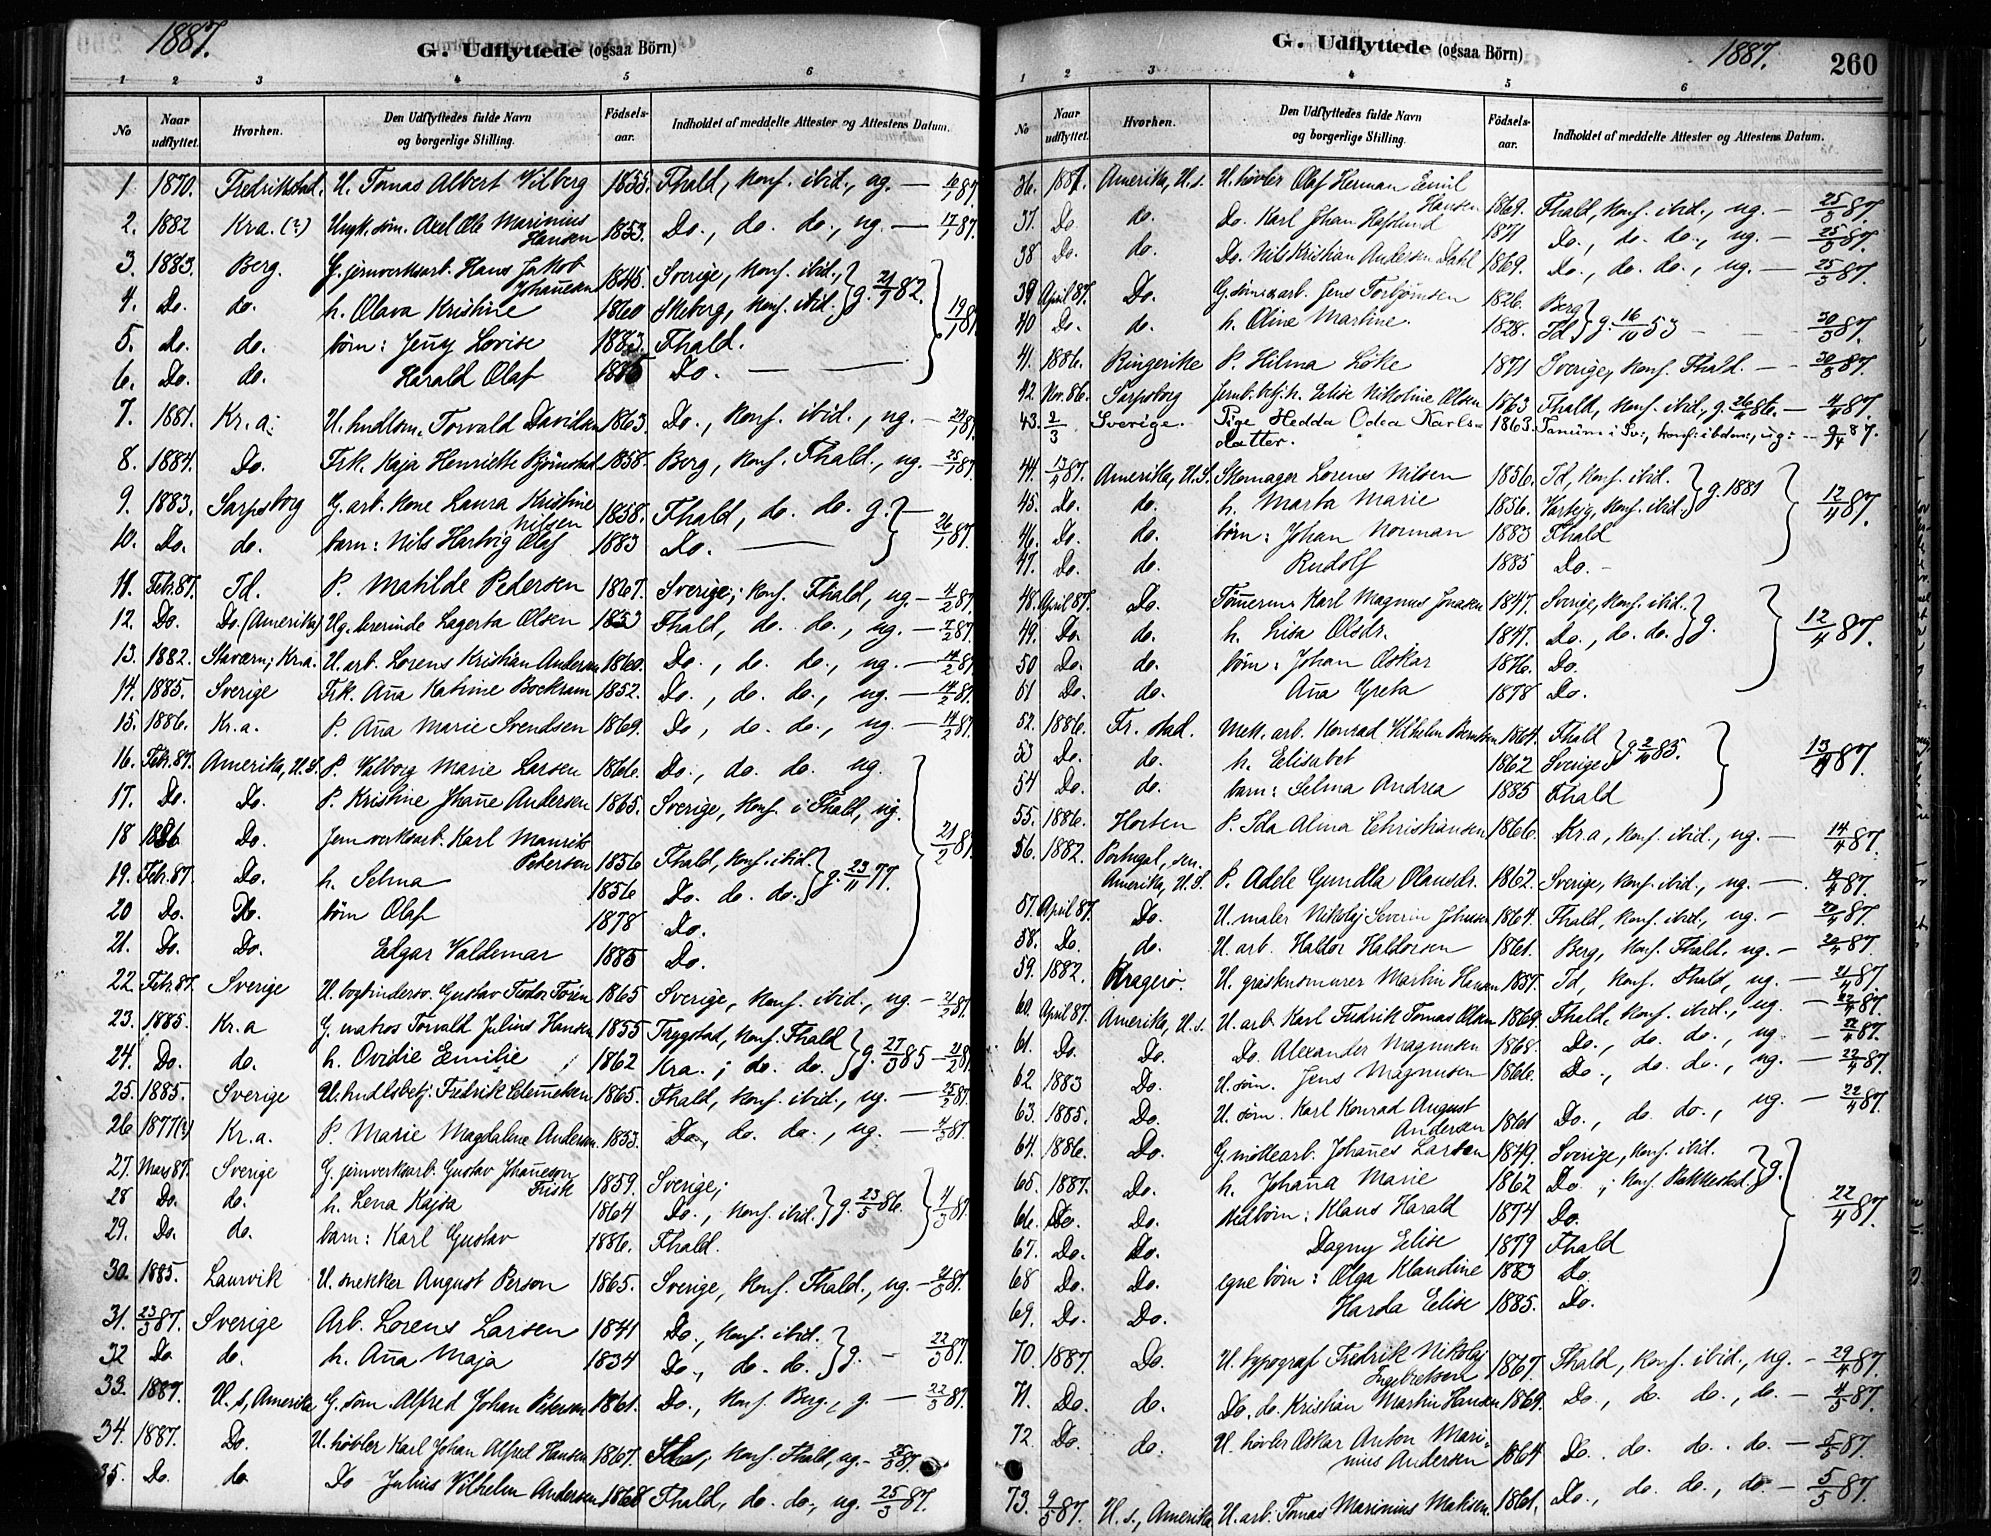 1887.
G. Udflyttede (ogsaa Börn)
1 2 3 4 5 6
No Naar udflyttet. Hvorhen. Den Udflyttedes fulde Navn og borgerlige Stilling. Födsels-aar. Indholdet af meddelte Attester og Attestens Datum.
1 1870. Fredrikstad. U. Tomas Albert Vilberg 1855. Fhald, konf. ibid., ug. —
2. 1882 Kra. (?) Ungk. söm. Axel Ole Marinius
Hansen 1853. Do., do. do., ug. — 17/1 87.
3. 1883. Berg. G. jernverksarb. Hans Jakob
Johañesen 1846. Sverige, konf. ibid.,
4. Do. do. h. Olava Kristine 1860 Skeberg, konf. ibid. g. 82. 19/1 87
5. do. do. börn: Jeñy Lovise 1883. Fhald.
6. Do. do. Harald Olaf Do. —
7. 1881. Kr.a. U. hndlsm. Torvald Davidsen 1863. Do., konf. ibid., ug. — 24/1 87.
8. 1884. Do. Frk. Kaja Henriette Björnstad 1858. Berg, konf. Fhald., ug. — 25/1 87.
9. 1883. Sarpsborg G. arb. kone Laura Kristine
Nilsen 1858. Fhald, do. do. g. —
10. Do. do. barn: Nils Hartvig Olaf 1883 Do. — 26/1 87.
11. Febr. 87. Id. P. Matilde Pedersen 1867. Sverige; konf. Fhald, ug. — 4/2 87.
12. Do. Do. (Amerika) Ug. lærerinde Lagerta Olsen 1853 Fhald, do. do., ug. — 7/2 87.
13. 1882. Staværn; Kr.a. U. arb. Lorens Kristian Andersen 1860. Do., do. do., ug. — 14/2 87
14. 1885. Sverige Frk. Aña Katrine Bockram 1852. Do., do. do., ug. — 14/2 87.
15. 1886. Kr.a. P. Aña Marie Svendsen 1869. Do, do. do., ug — 14/2 87.
16. Febr. 87. Amerika, U.S. P. Valborg Marie Larsen 1866. Do., do. do. ug.
17. Do. Do. P. Kristine Johañe Andersen 1865. Sverige, konf. i Fhald, ug.
18 1886 Do. Jernverksarb. Karl Maurits
Pedersen 1856 Fhald, konf. ibid.
19. Febr. 87. Do. h. Selma 1856 Do. do. do. g. 23/11 77. 21/2 87.
20 Do. Do. börn Olaf 1878 Do.
21. Do. Do. Edgar Valdemar 1885 Do.
22. Febr. 87. Sverige U. bogbindersv. Gustav Teodor Toren 1865 Sverige, konf. ibid., ug. — 21/2 87.
23. 1885. Kr.a G. matros Torvald Julius Hansen 1855 Trygstad, konf. Fhald
24. Do. do. h. Ovidie Emilie 1862 Kra.; do. do. g. 27/3 85 — 21/2 87
25. 1885. Sverige U. hndlsbetj. Fredrik Clemetsen 1865. Fhald, konf. ibid., ug. — 25/2 87.
26 1877(?) Kr.a. P. Marie Magdalene Andersen 1853. Do., do. do., ug. — 4/3 87.
27. Mars 87. Sverige G. jernverksarb. Gustav Johañeson
Frisk 1859. Sverige;
28 Do. do. h. Lena Kajsa 1864 Do., konf. ibid. g. 23/5 86. 11/3 87.
29. Do. do. barn: Karl Gustav 1886. Fhald.
30. 1885. Laurvik U. snekker August Person 1865. Sverige, konf. Fhald., ug. — 21/3 87.
31. 23/3 87. Sverige Arb. Lorens Larsen 1841 Do., konf. ibid.
32 Do do. h. Aña Maja 1834 Do., do. do. g. — 22/3 87.
33. 1887. U. s., Amerika G. söm. Alfred Johan Petersen 1861. Do., konf. Berg., g — 22/3 87.
34. 1887. Do. U. hövler Karl Johan Alfred Hansen 1867. konf. Fhald, ug. — 25/3 87.
35. Do. do Do Julius Vilhelm Andersen 1868 Fhald, do. do., ug. 25/3 87.
G. Udflyttede (ogsaa Börn)
1887.
260
1 2 3 4 5 6
No Naar udflyttet. Hvorhen. Den Udflyttedes fulde Navn og borgerlige Stilling. Födsels-aar. Indholdet af meddelte Attester og Attestens Datum.
36. 1887. Amerika, U. s. U. hövler Olaf Herman Emil
Hansen 1869. Fhald, konf. ibid., ug. — 25/3 87.
37. Do. do. Do. Karl Johan Hafslund 1871 Do., do. do., ug. — 25/3 87.
38 Do. do. Do. Nils Kristian Andersen Dahl 1869. Do., do. do., ug. — 25/3 87.
39 April 87. Do. Jens Torbjörnsen 1826. Berg
40 Do. do. h. Oline Martine. 1828. Id g. 16/10 53 — 30/3 87.
41. 1886. Ringerike P. Hilma Löke 1871 Sverige, konf. Fhald. — 30/3 87.
42. Nov. 86. Sarpsborg Jernb. betj. h. Elise Nikoline Olsen 1863 Fhald, konf. ibid., g. 86. — 4/4 87.
43. 2/3 Sverige. Pige Hedda Odea Karls-
datter. 1863. Tanum i Sv., konf: ibdm:, ug: — 9/4 87.
44. 87. Amerika, U.S. Skomager Lorens Nilsen 1856. Id, konf. ibid.
45. Do. do. h. Marta Marie 1856. Varteig, konf. ibid. g. 1881 12/4 87.
46. Do. do. börn: Johan Norman 1883 Fhald
47. Do. do. Rudolf 1885 Do. —
48. April 87. Do. Tömerm. Karl Magnus Jonasen 1847. Sverige, konf. ibid.
49. Do. do. h. Lisa Olsdr. 1847. Do., do. do. g. 12/4 87.
50 Do. do. börn: Johan Oskar 1876. Do.
51 Do. do. Aña Greta 1878 Do.
52. 1886. Fr. stad. Mek. arb. Konrad Vilhelm Berntsen 1864. Fhald
53 Do. do. h. Elisabet 1862 Sverige g. 85. 13/4 87.
54 Do. do. barn: Selma Andrea 1885 Fhald
55. 1886. Horten P. Ida Alma Christiansen 1866. Kr.a, konf. ibid., ug. — 14/4 87.
56. 1882. Portugal, sen.
Amerika, U.S. P. Adele Gundla Olausdr. 1862. Sverige, konf. ibid., ug. — 19/4 87.
57. April 87. Do. U. maler Nikolaj Severin Johnsen 1864. Fhald, konf. ibid., ug. — 20/4 87.
58. Do. do. U. arb. Haldor Haldorsen 1861. Berg, konf. Fhald, ug. — 20/4 87.
59. 1882. Kragerö. U. Martin Hansen 1857. Id, konf. Fhald, ug. — 21/4 87.
60. April 87. Amerika, U. s. U. arb. Karl Fredrik Tomas Olsen 1869. Fhald, konf. ibid., ug. — 22/4 87.
61. Do. Do. Do. Alexander Magnusen 1868. Do., do. do., ug — 22/4 87.
62. 1883 Do. U. söm. Jens Magnusen 1866. Do., do. do., ug. — 22/4 87.
63. 1885. Do. U. söm. Karl Konrad August
Andersen 1861 Do., do. do., ug. — 22/4 87.
64. 1886. Do. G. möllearb. Johañes Larsen 1849. Sverige, konf. ibid.
65. 1887. Do. h. Johaña Marie 1862 Do; konf. Rakkestad. g.
66. Do. Do. stedbörn: Klaus Harald 1874 Do. 22/4 87.
67. Do. Do. Dagny Elise 1879 Fhald
68 Do. Do. egne börn: Olga Klaudine 1883 Do.
69. Do. Do. Harda Elise 1885. Do.
70. 1887. Do. U. typograf Fredrik Nikolaj
Ingebretsen 1867. Fhald, konf. ibid., ug. — 29/4 87.
71. Do. do. Do. do. Kristian Martin Hansen 1869. Do., do. do., do. — 4/5 87.
72. Do. do. U. hövler Oskar Anton Mari-
nius Andersen 1864 Do. do. do. do. — 5/5 87.
73. 9/5 87. U. s., Amerika U. arb. Tomas Marinius Maksen. 1861. Do., do. do., do. — 5/5 87.